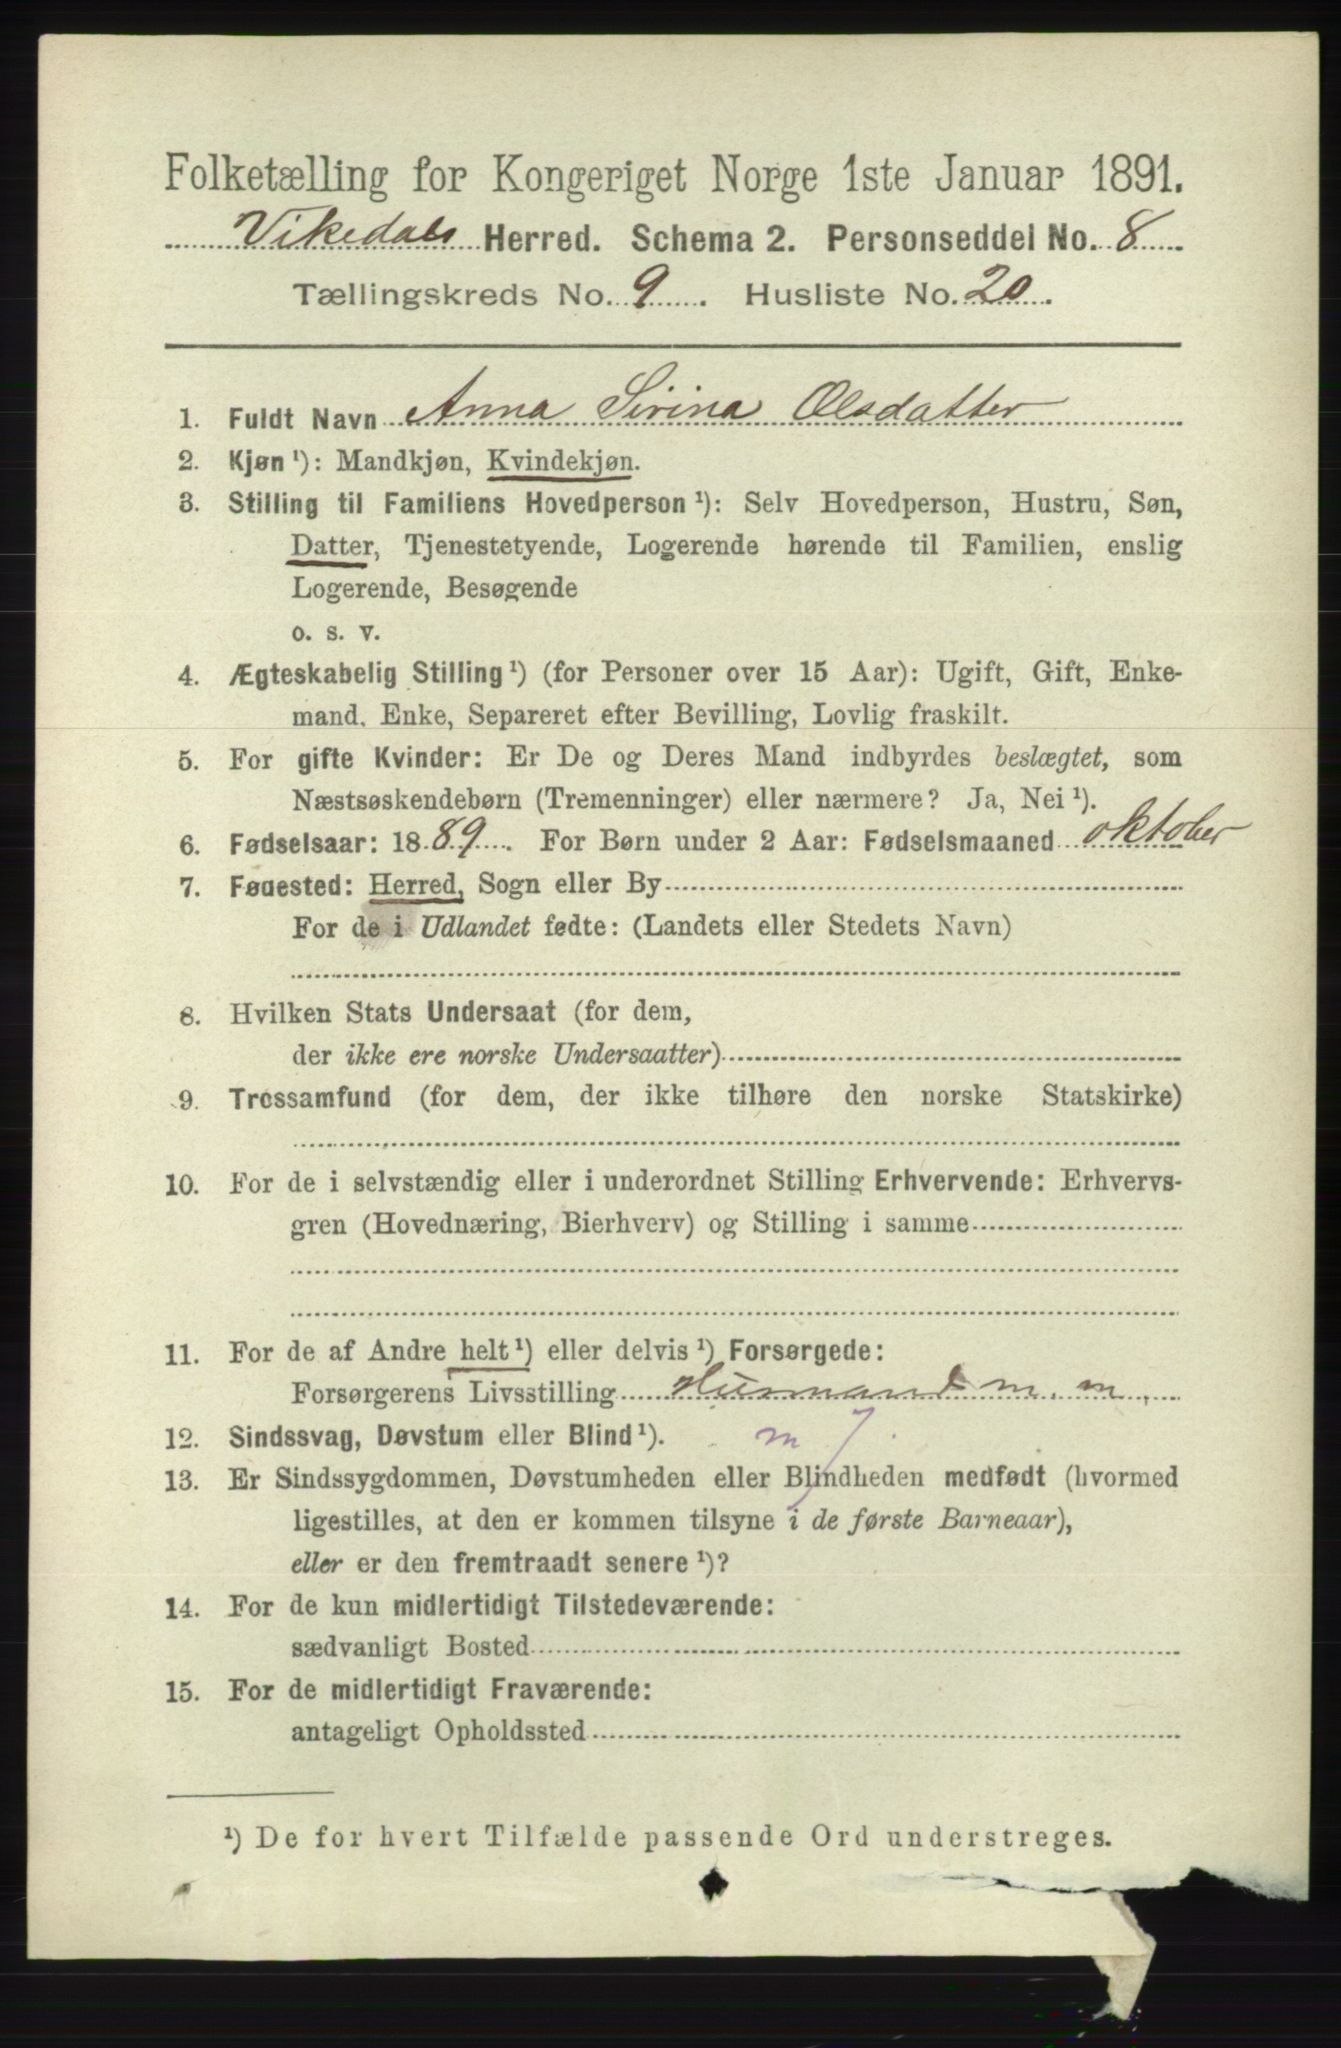 Folketælling for Kongeriget Norge 1ste Januar 1891.
Vikedals Herred. Schema 2. Personseddel No. 8
Tællingskreds No. 9. Husliste No. 20.
1. Fuldt Navn Anna Sirina Olsdatter
2. Kjøn ¹): Mandkjøn, Kvindekjøn.
3. Stilling til Familiens Hovedperson ¹): Selv Hovedperson, Hustru, Søn,
Datter, Tjenestetyende, Logerende hørende til Familien, enslig
Logerende, Besøgende
o. s. v.
4. Ægteskabelig Stilling ¹) (for Personer over 15 Aar): Ugift, Gift, Enke-
mand, Enke, Separeret efter Bevilling, Lovlig fraskilt.
5. For gifte Kvinder: Er De og Deres Mand indbyrdes beslægtet, som
Næstsøskendebørn (Tremenninger) eller nærmere? Ja, Nei ¹).
6. Fødselsaar: 1889. For Børn under 2 Aar: Fødselsmaaned oktober
7. Fødested: Herred, Sogn eller By
For de i Udlandet fødte: (Landets eller Stedets Navn)
8. Hvilken Stats Undersaat (for dem,
der ikke ere norske Undersaatter)
9. Trossamfund (for dem, der ikke tilhøre den norske Statskirke)
10. For de i selvstændig eller i underordnet Stilling Erhvervende: Erhvervs-
gren (Hovednæring, Bierhverv) og Stilling i samme
11. For de af Andre helt ¹) eller delvis ¹) Forsørgede:
Forsørgerens Livsstilling Husmand m. m.
12. Sindssvag, Døvstum eller Blind ¹).
13. Er Sindssygdommen, Døvstumheden eller Blindheden medfødt (hvormed
ligestilles, at den er kommen tilsyne i de første Barneaar),
eller er den fremtraadt senere ¹)?
14. For de kun midlertidigt Tilstedeværende:
sædvanligt Bosted
15. For de midlertidigt Fraværende:
antageligt Opholdssted
¹) De for hvert Tilfælde passende Ord understreges.